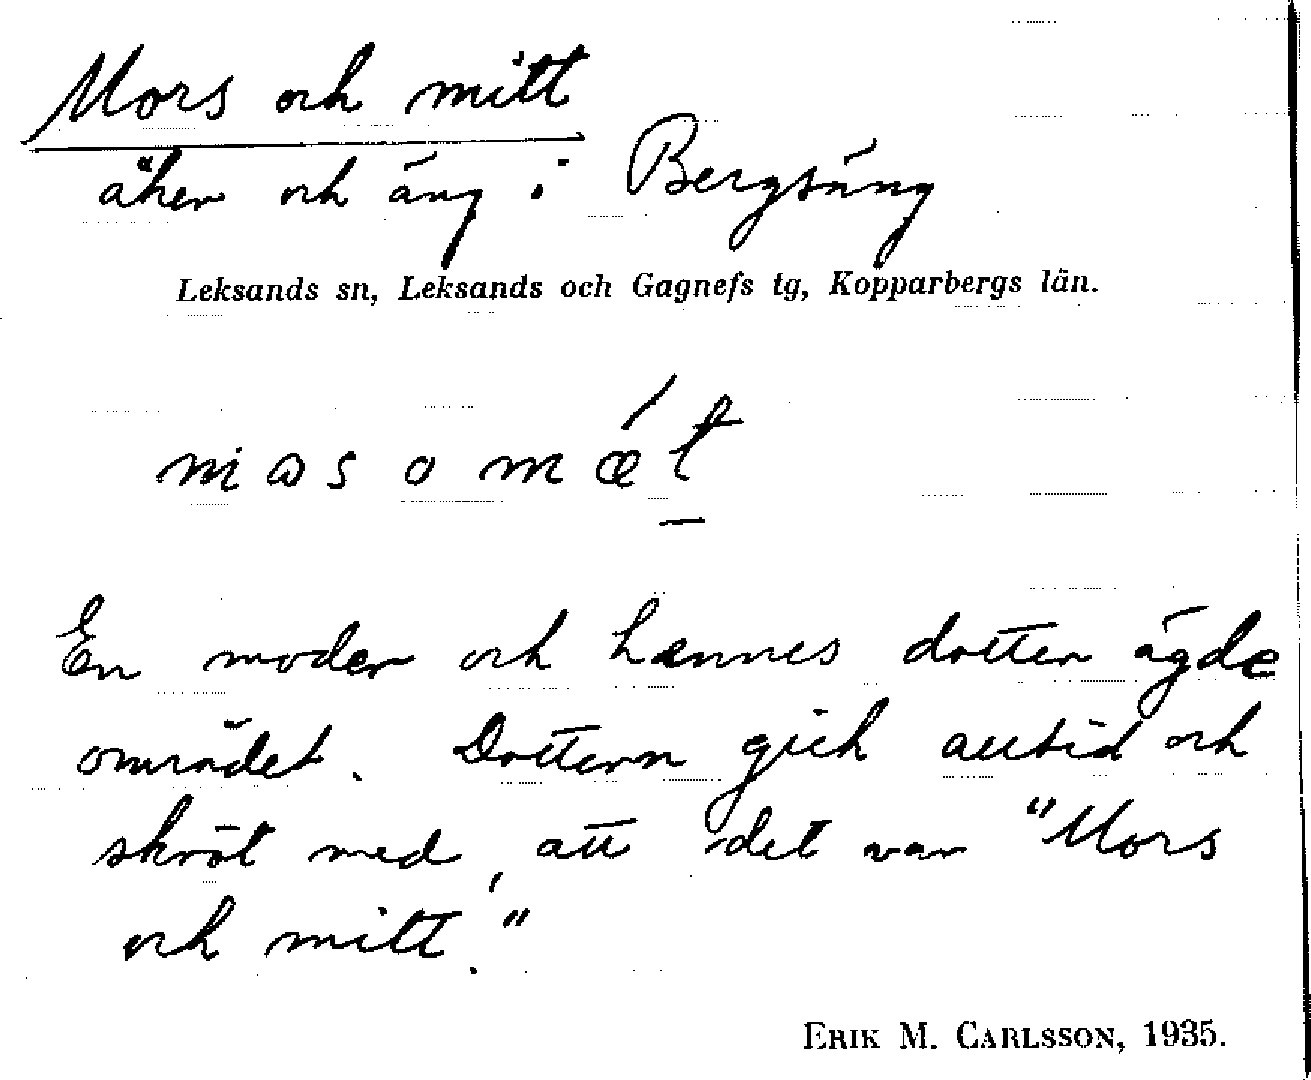 Mors och mitt
åker och äng i Bergsäng
Leksands sn, Leksands och Gagnefs tg, Kopparbergs län.
En moder och hennes dotter ägde
området. Dottern gick alltid och
skröt med, att det var "Mors
och mitt."
ERIK M. CARLSSON, 1935.